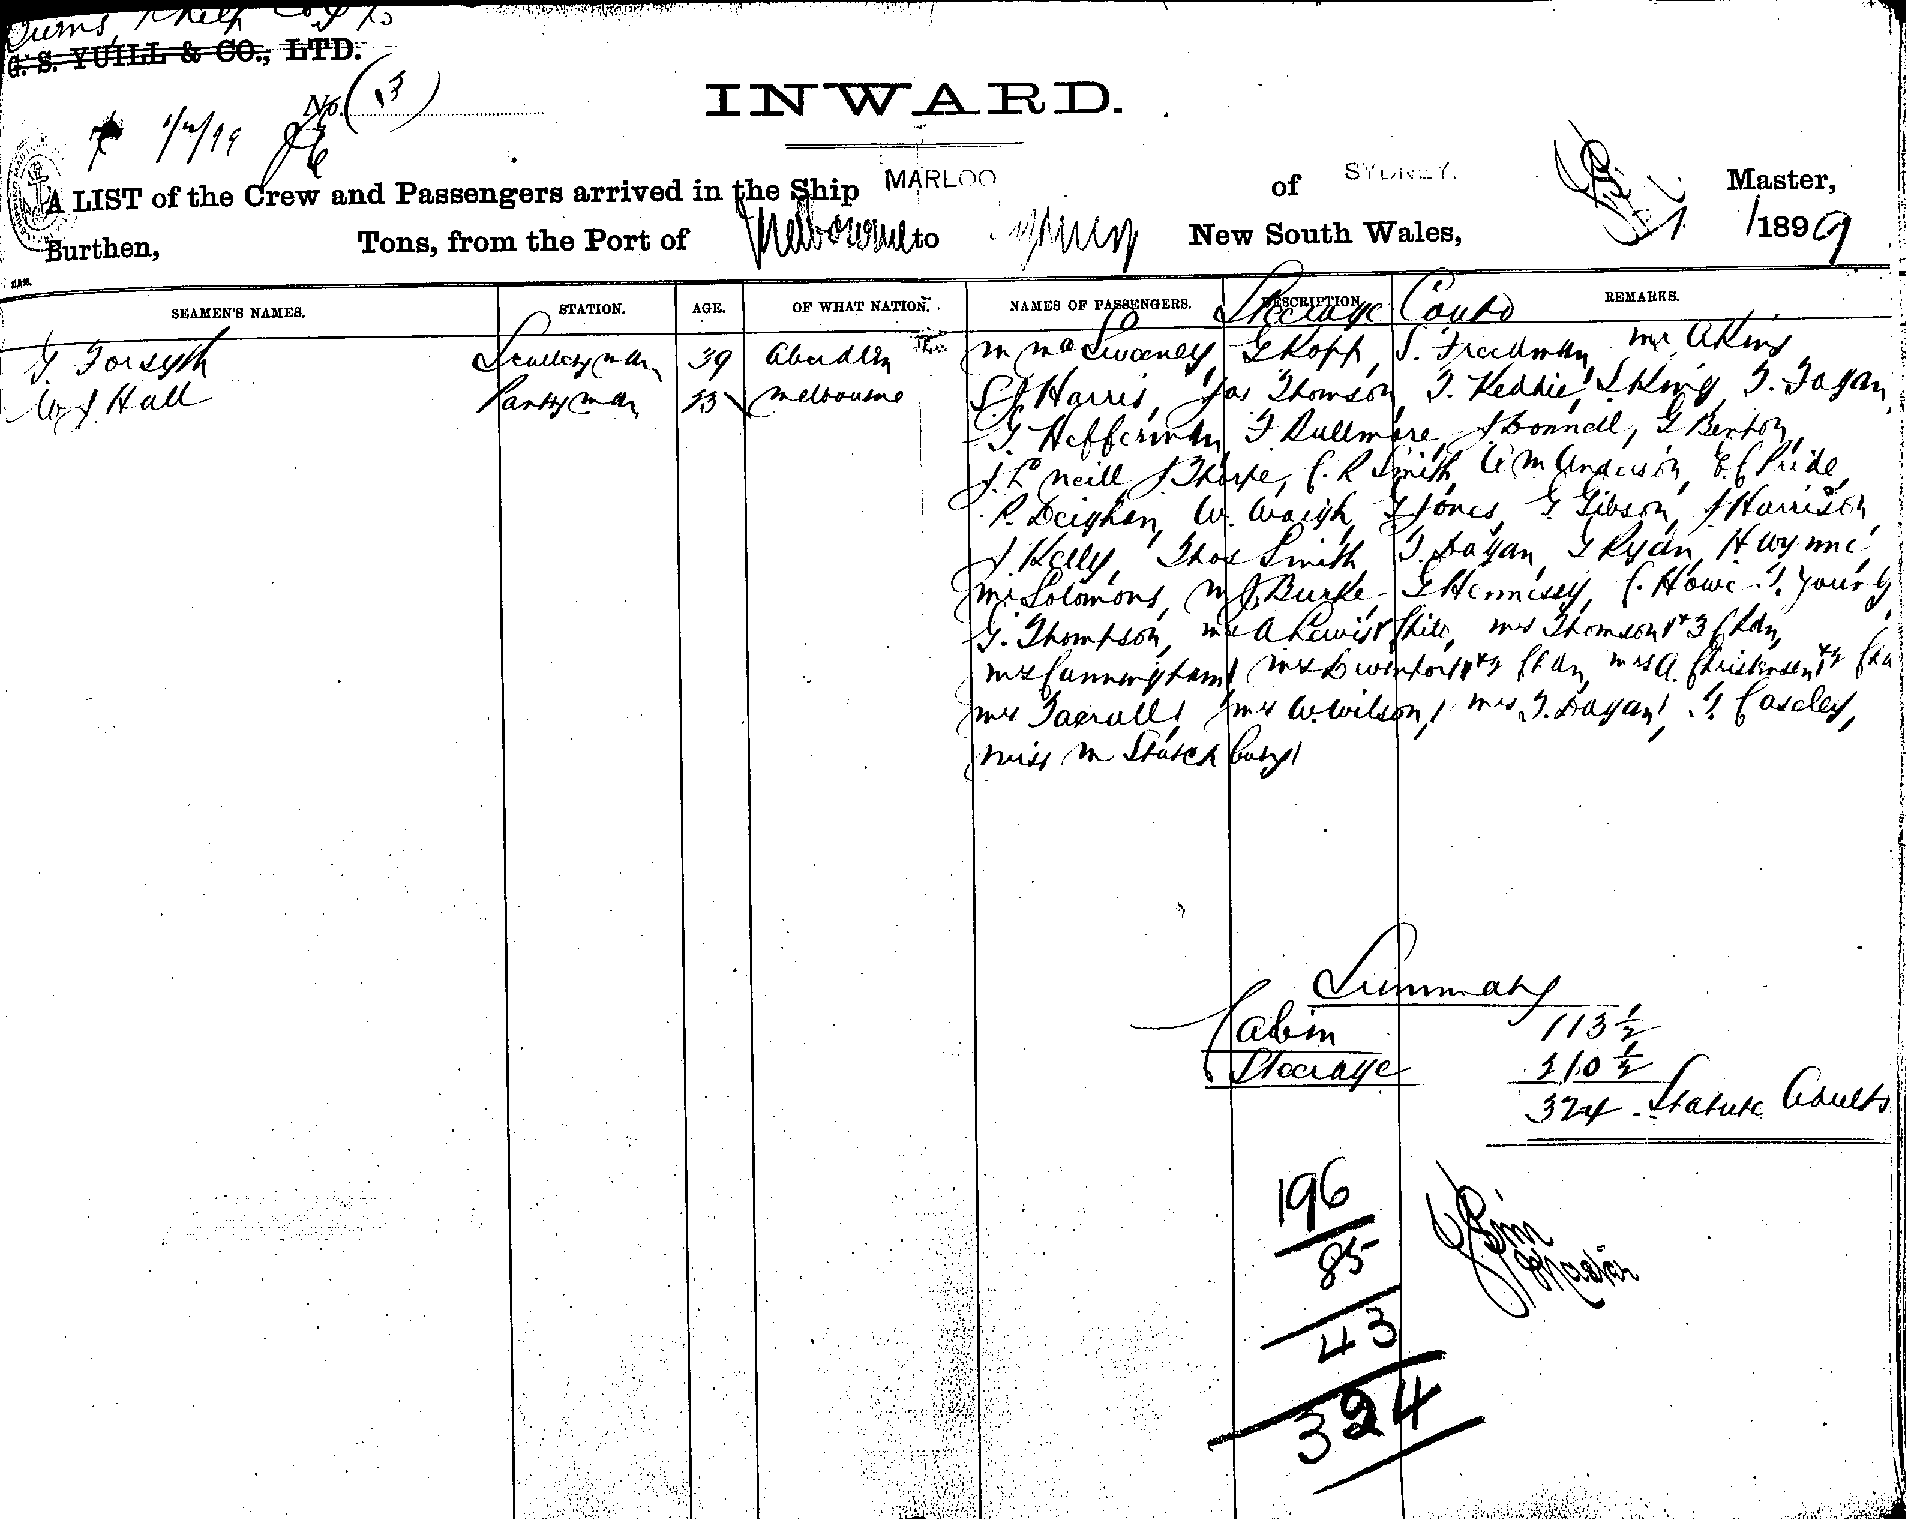 Burns, Philp Co Ld
G. S. YUILL & CO., LTD.
No. (13)
INWARD.
A LIST of the Crew and Passengers arrived in the Ship MARLOO of SYDNEY. Master,
Burthen, Tons, from the Port of Melbourne to Sydney New South Wales, 1899
SEAMEN'S NAMES. STATION. AGE. OF WHAT NATION. NAMES OF PASSENGERS. DESCRIPTION REMARKS.
Steerage Contd
Forsyth Scullery man 39 Aberdeen
W J Hall Pantry man 23 Melbourne
M McSweeney, G Kopp, S. Freedman, Mr Akins
S J Harris, Jas Thomson, T. Keddie, S King, T. Fagan,
T. Hefferman, F Rullmore, J Connell, G Benton,
J. L Neill, J Thorpe, C. R Smith, A M Anderson, E C Pride,
R. Deighan, W. Waigh, T Jones, G. Gibson, J Harrison,
J. Kelly, Thos Smith, T. Dagan, T Ryan, H Wynne,
Mr Solomons, M J Burke, G Hennessy, C. Howe, T. Young,
G. Thompson, Mrs A Lewis & Child, Mrs Thomson & 3 Chdn,
Mrs Cunningham, Mrs & 2 Chdn, Mrs A. Christensen & 2 Chd
Mrs Mrs W. Wilson, Mrs T. Dagan, T. Caseley,
Miss M Stutchbury
Summary
Cabin 113½
Steerage 210½
324 Statute Adults
196
85
43
324
J Sim
Master